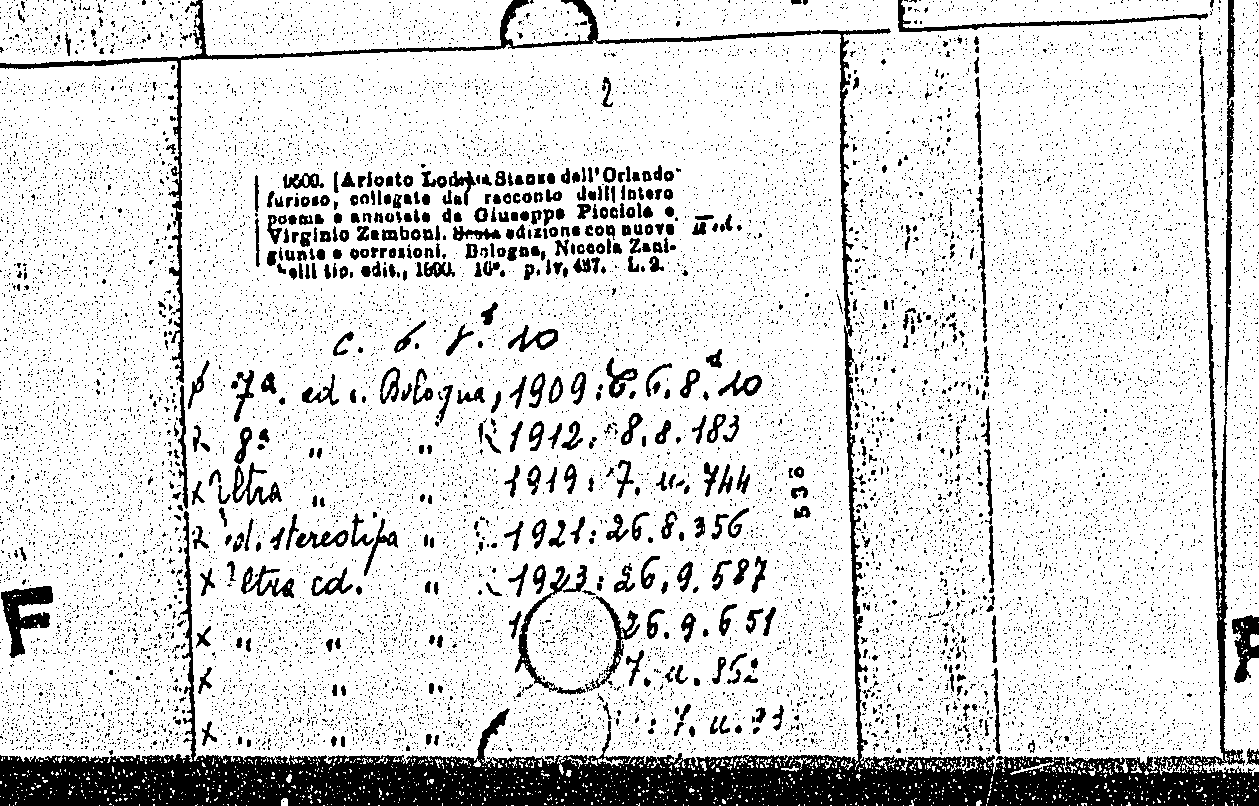 2
[Ariosto Stanze dell'Orlando
furioso, collegate dal racconto dell'intero
poema e annotate da Giuseppe Picciola e
Virginio Zamboni. Sesta edizione con nuove
giunte e correzioni. Bologna, Niccola Zani-
tip. edit., 1900. 16°. p. iv, 437. L. 2.
10
7ª. ed. Bologna, 1909: C.6.8.10
8ª " " 1912: 8.8.183
" " 1919: 7.u.744
stereotipa " 1921: 26.8.356
ed. " 1923: 26.9.587
x " " " 26.9.651
x " " 7.u.852
x " " " : 7.u.
538
F